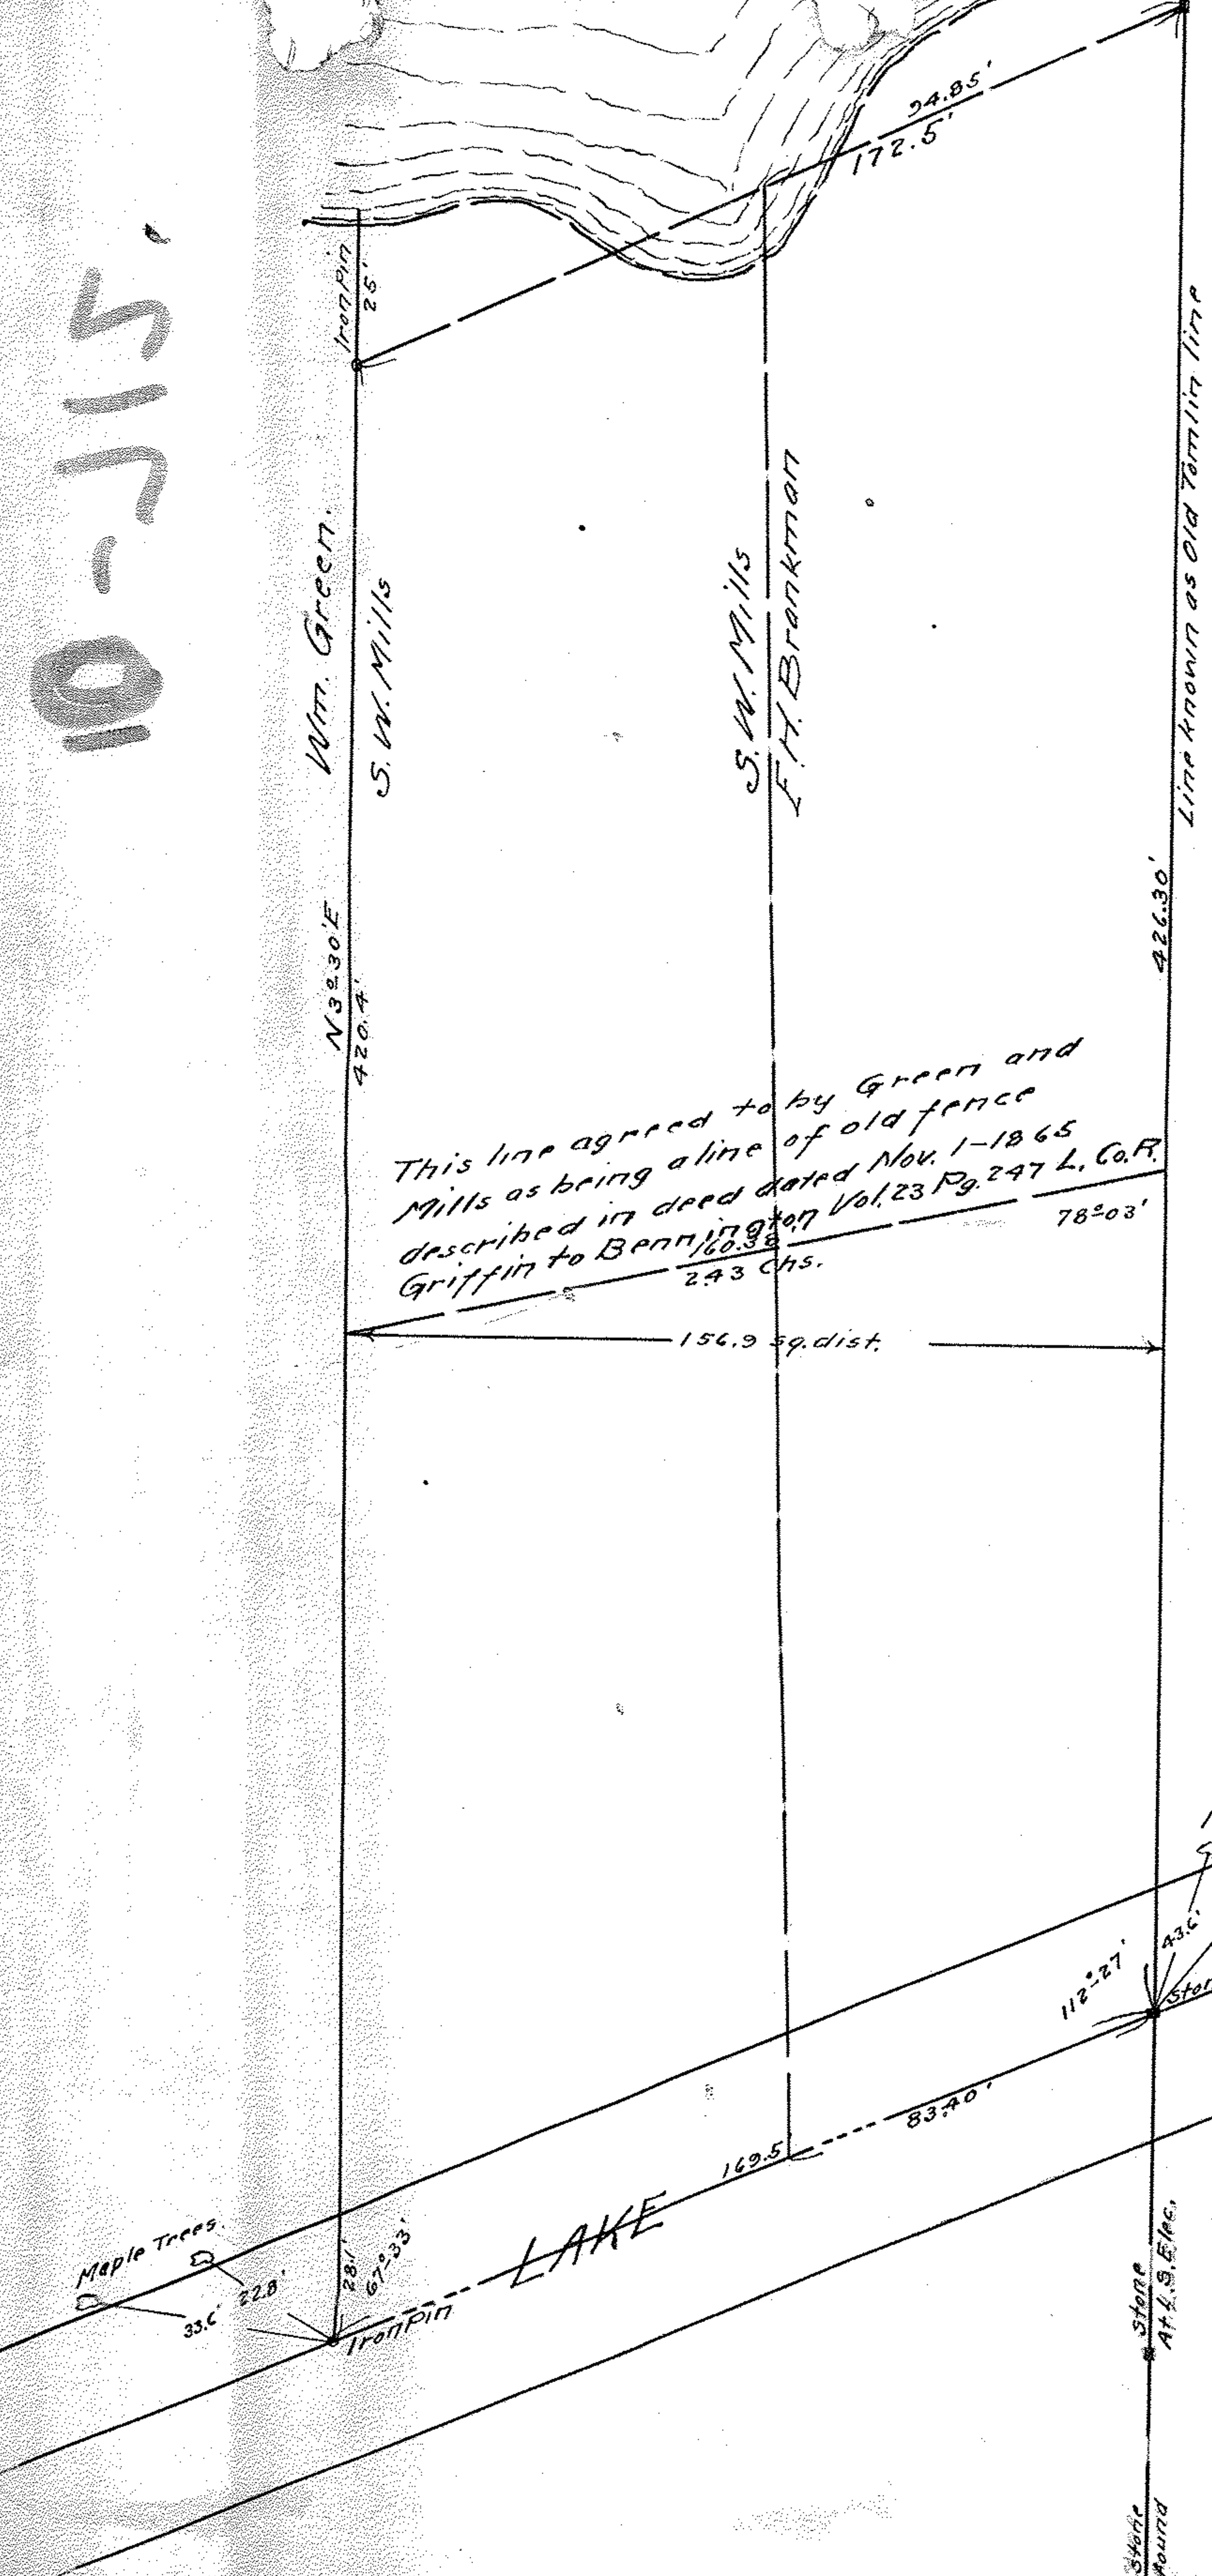 94.85'
172.5'
Iron Pin
25'
Line known as Old Tomlin line
Wm. Green.
S. W. Mills
S. W. Mills
F. H. Brankman
N 3º30'E
420.4'
426.30'
This line agreed to by Green and
Mills as being a line of old fence
described in deed dated Nov. 1-1865
Griffin to Bennington Vol. 23 Pg. 247 L. Co. R.
160.38'
2.43 Chs.
78º03'
156.9 sq. dist.
112º-27'
43.6'
83.40'
169.5
LAKE
Maple Trees.
22.8'
33.6'
28.1'
67º-33'
Iron Pin
Stone
At L.S. Elec.
Stone